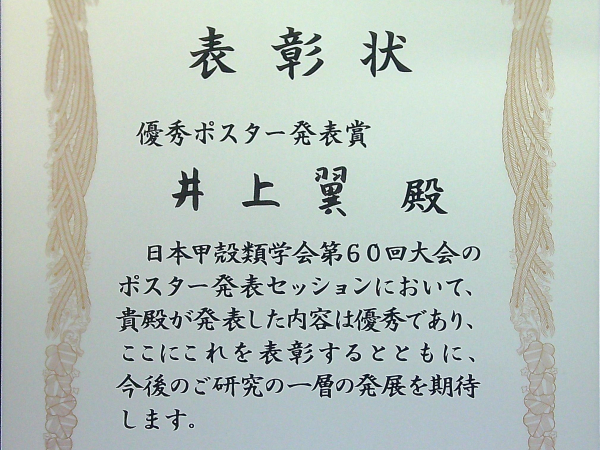 表彰状
優秀ポスター発表賞
井上翼 殿
日本甲殻類学会第60回大会の
ポスター発表セッションにおいて、
貴殿が発表した内容は優秀であり、
ここにこれを表彰するとともに、
今後のご研究の一層の発展を期待
します。